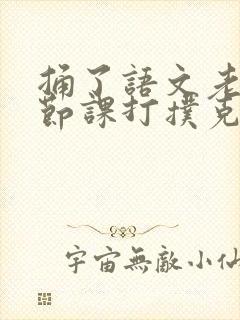 捅了語文老
節課打撲克
宇宙無敵小仙